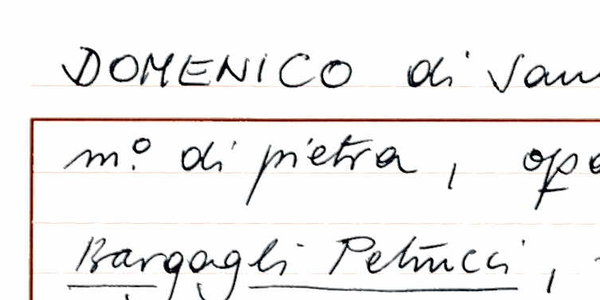 DOMENICO di
m.º di pietra,
Bargagli Petrucci,